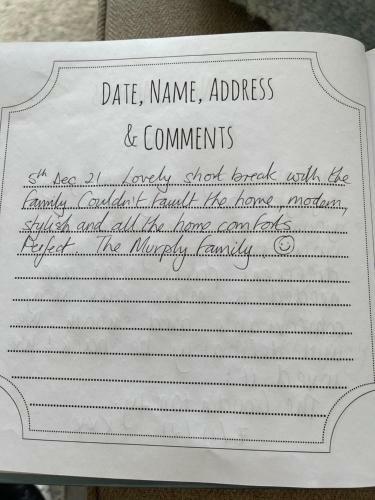 DATE, NAME, ADDRESS
& COMMENTS
5th Dec 21 Lovely short break with the
family. Couldn't fault the home, modern,
stylish and all the home comforts.
Perfect. The Murphy Family ☺